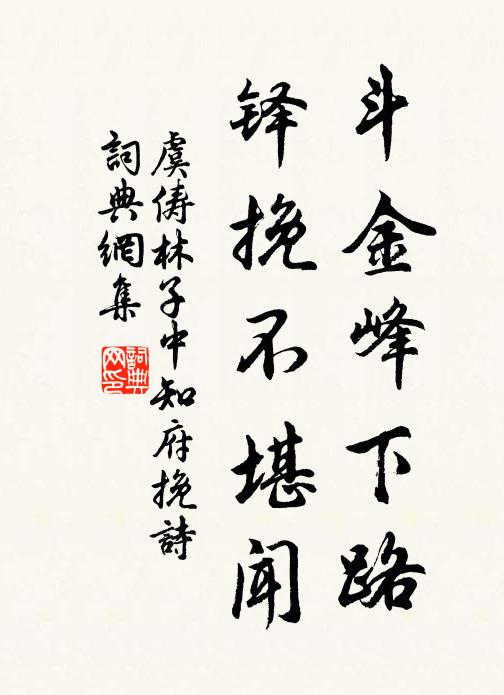 斗金峰下路
铎挽不堪闻
虞俦林子中知府挽詩
詞典網集
詞典网印